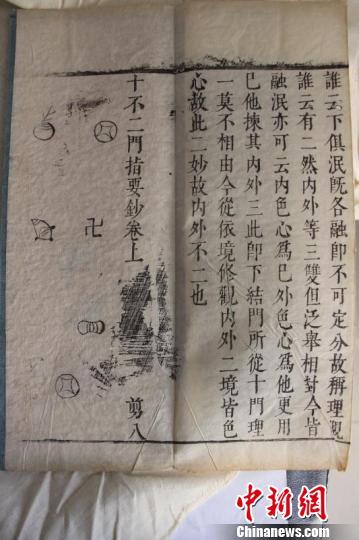 誰云下俱泯既各融即不可定分故稱理觀
誰云有二然內外等三雙但泛舉相對今皆
融泯亦可云內色心為巳外色心為他更用
巳他揀其內外三此即下結門所從十門理
一莫不相由今從依境修觀內外二境皆色
心故此二妙故內外不二也
十不二門指要鈔卷上
剪八
卍
中新網
Chinanews.com